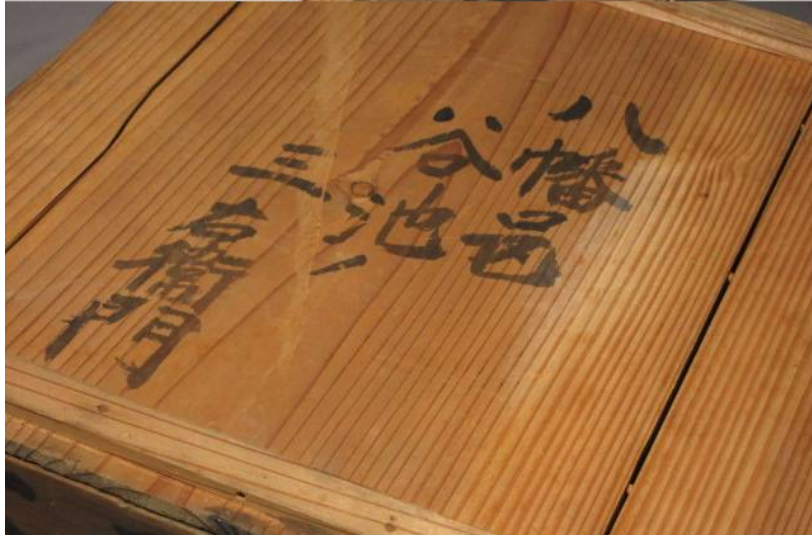 八幡邑
谷池ノ
三右衛門